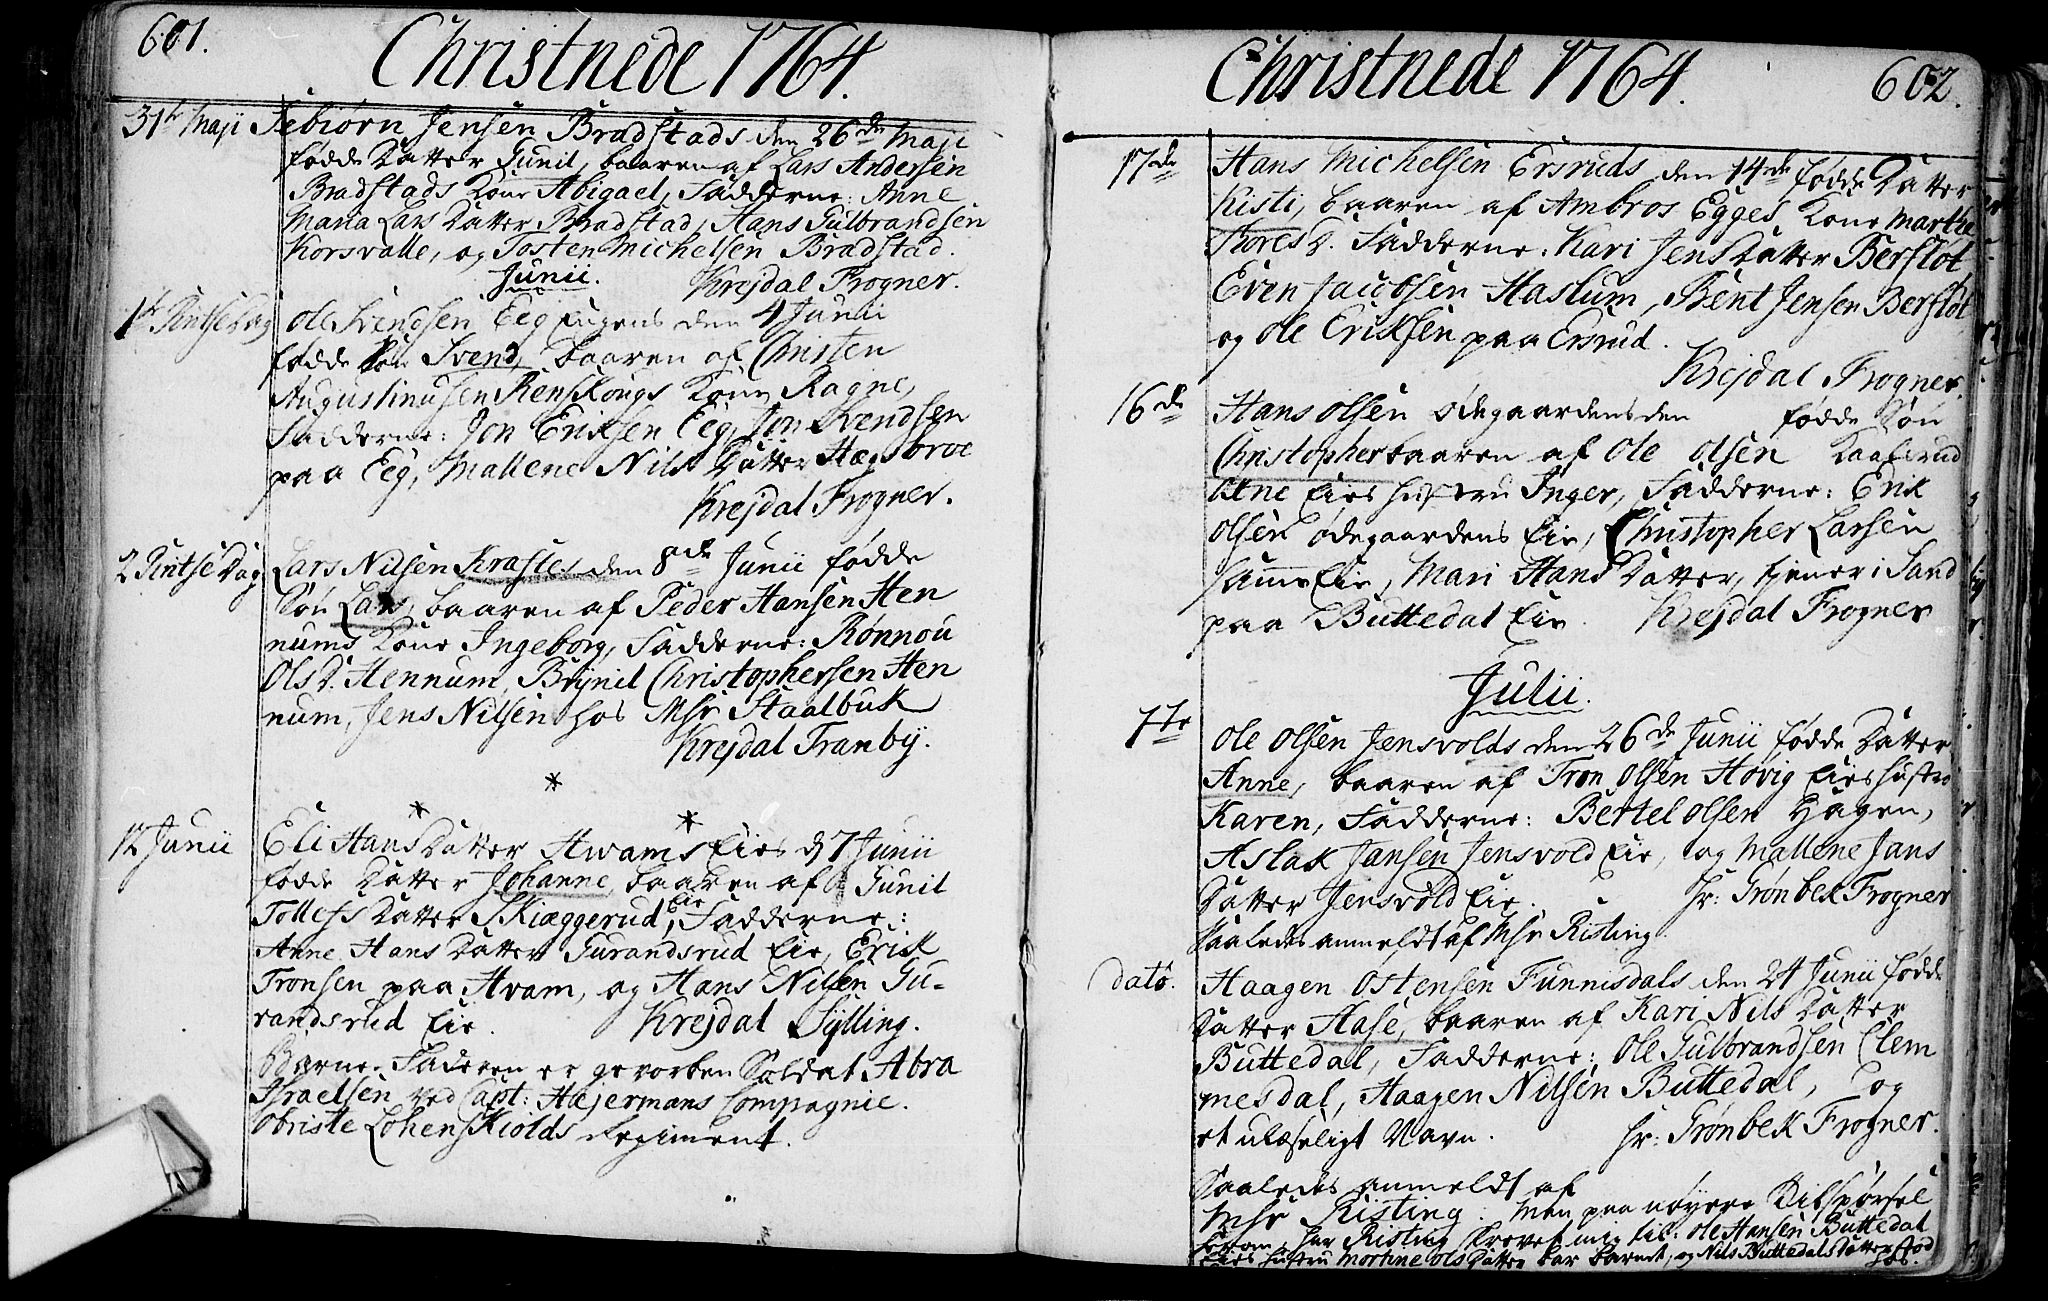 601.
Christnede 1764.
31te Maji Febiørn Jensen Bradstads den 26de Maji
fødde Datter Gunil, baaren af Lars Andersen
Bradstads Kone Abigael, Fadderne: Anne
Maria Lars Datter Bradstad, Hans Gulbrandsen
Korsvalle, og Tosten Michelsen Bradstad.
Junii. Krejdal Frogner.
1te Pintsedag Ole Svendsen Eeg Eugens den 4 Junii
fødde Søn Svend, baaren af Christen
Augustinusen Renskougs Kone Ragne,
Fadderne: Jon Eriksen Eeg, Jon Svendsen
paa Eeg, Mallene Nils Datter Hægsbroe
Krejdal Frogner.
2 Pintse Dag Lars Nilsen Krastes den 8de Junii fødde
Søn Lars, baaren af Peder Hansen Hen
nums Kone Ingeborg, Fadderne: Rønnou
Ols D. Hennum, Brynil Christophersen Hen
num, Jens Nilsen hos Msr Staalbuk
Krejdal Tranby.
*
* *
12 Junii Eli Hans Datter Hwams Eies d 7 Junii
fødde Datter Johanne, baaren af Gunil
Tollefs Datter Skiæggerud Eie, Fadderne:
Anne Hans Datter Gurandsrud Eie, Erik
Tronsen paa Hvam, og Hans Nilsen Gu-
randsrud Eie. Krejdal Sylling.
Barne-Faderen er gevorben Soldat Abra
Israelsen ved Capt: Hejermans Compagnie.
Obriste Lohenskiolds Regiment.
Christnede 1764. 602.
17de Hans Michelsen Ersruds den 14de fødde Datter
Kisti, baaren af Ambros Egges Kone Marthe
Thores D. Fadderne: Kari Jens Datter Bersløt
Even Jacobsen Haslum, Bent Jensen Bersløt,
og Ole Eriksen paa Ersrud.
Krejdal Frogner.
16de Hans Olsen Ødegaardens den fødde Søn
Christopher baaren af Ole Olsen Kaalsrud
Eies Hustru Inger, Fadderne: Erik
Olsen Ødegaardens Eie, Christopher Larsen
samme Eie, Mari Hans Datter, tjener i Sand
paa Buttedal Eie. Krejdal Frogner
Julii.
1te Ole Olsen Jensvolds den 26de Junii fødde Datter
Anne, baaren af Tron Olsen Høvig Eies Hustro
Karen, Fadderne: Bertel Olsen Hagen,
Aslak Jansen Jensvold Eie, og Mallene Jans
Datter Jensvold Eie. Hr: Grønbek Frogner
Saaledes anmeldt af Msr Risting.
dato. Haagen Ostensen Funnisdals den 24 Junii fødde
Datter Aase, baaren af Kari Nils Datter
Buttedal, Fadderne: Ole Gulbrandsen Clem
mesdal, Haagen Nilsen Buttedal, og
et ulæseligt Navn. Hr: Grønbek Frogner.
Saaledes anmeldt af
Msr Risting: Men paa nøyere Tilspørsel
herom, har Risting skrevet mig til: Ole Hansen Buttedal
Eies Hustru Mortine Ols Datter bar Barnet, og Nils Buttedals Datter stod
hos.